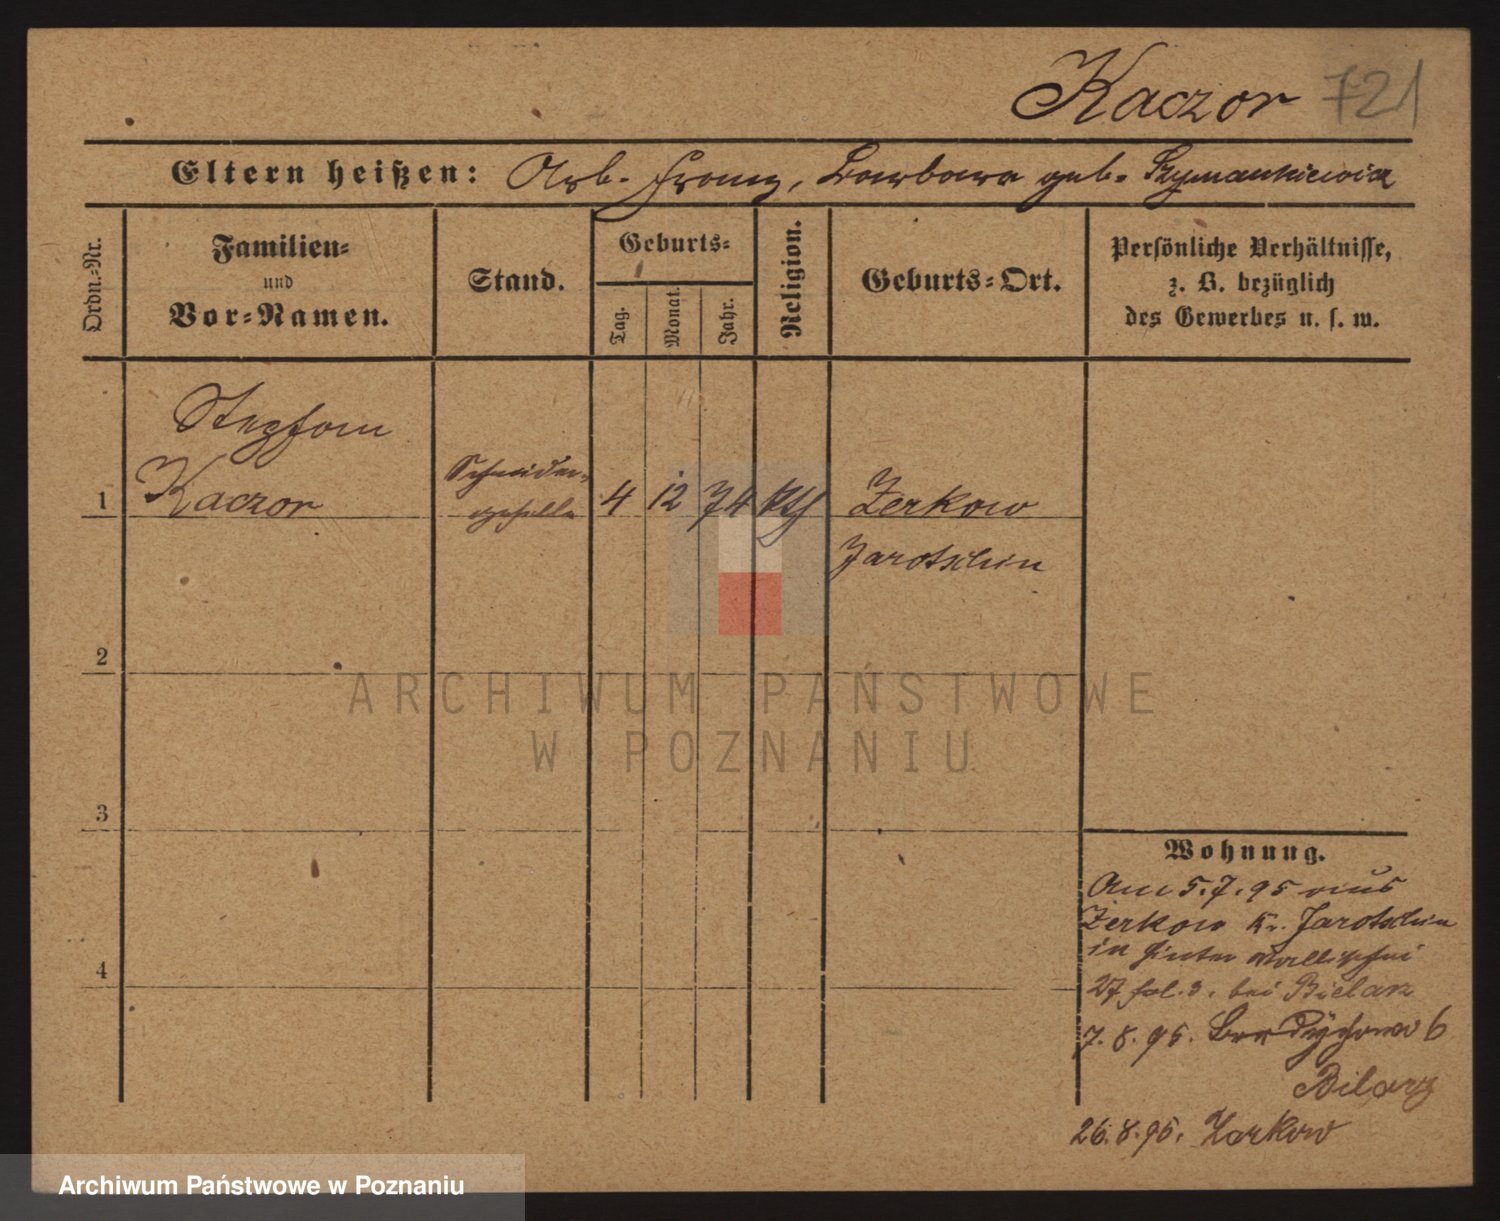 Kaczor 721
Eltern heißen: Arb. Franz, Barbara geb. Szymankiewicz
Ordn.-Nr.
Familien-
und
Vor-Namen.
Stand.
Geburts-
Tag.
Monat.
Jahr.
Religion.
Geburts-Ort.
Persönliche Verhältnisse,
z. B. bezüglich
des Gewerbes u. s. w.
Stephan
1 Kaczor
Schneider-
geselle
4 12 74 kth
Zerkow
Jarotschin
2
3
4
ARCHIWUM PAŃSTWOWE
W POZNANIU
Wohnung.
Am 5.7.95 aus
Zerkow Kr. Jarotschin
in Hinter Wallischei
27 bei Bielarz
7.8.95. 6
Bilarz
26.8.95. Zerkow
Archiwum Państwowe w Poznaniu